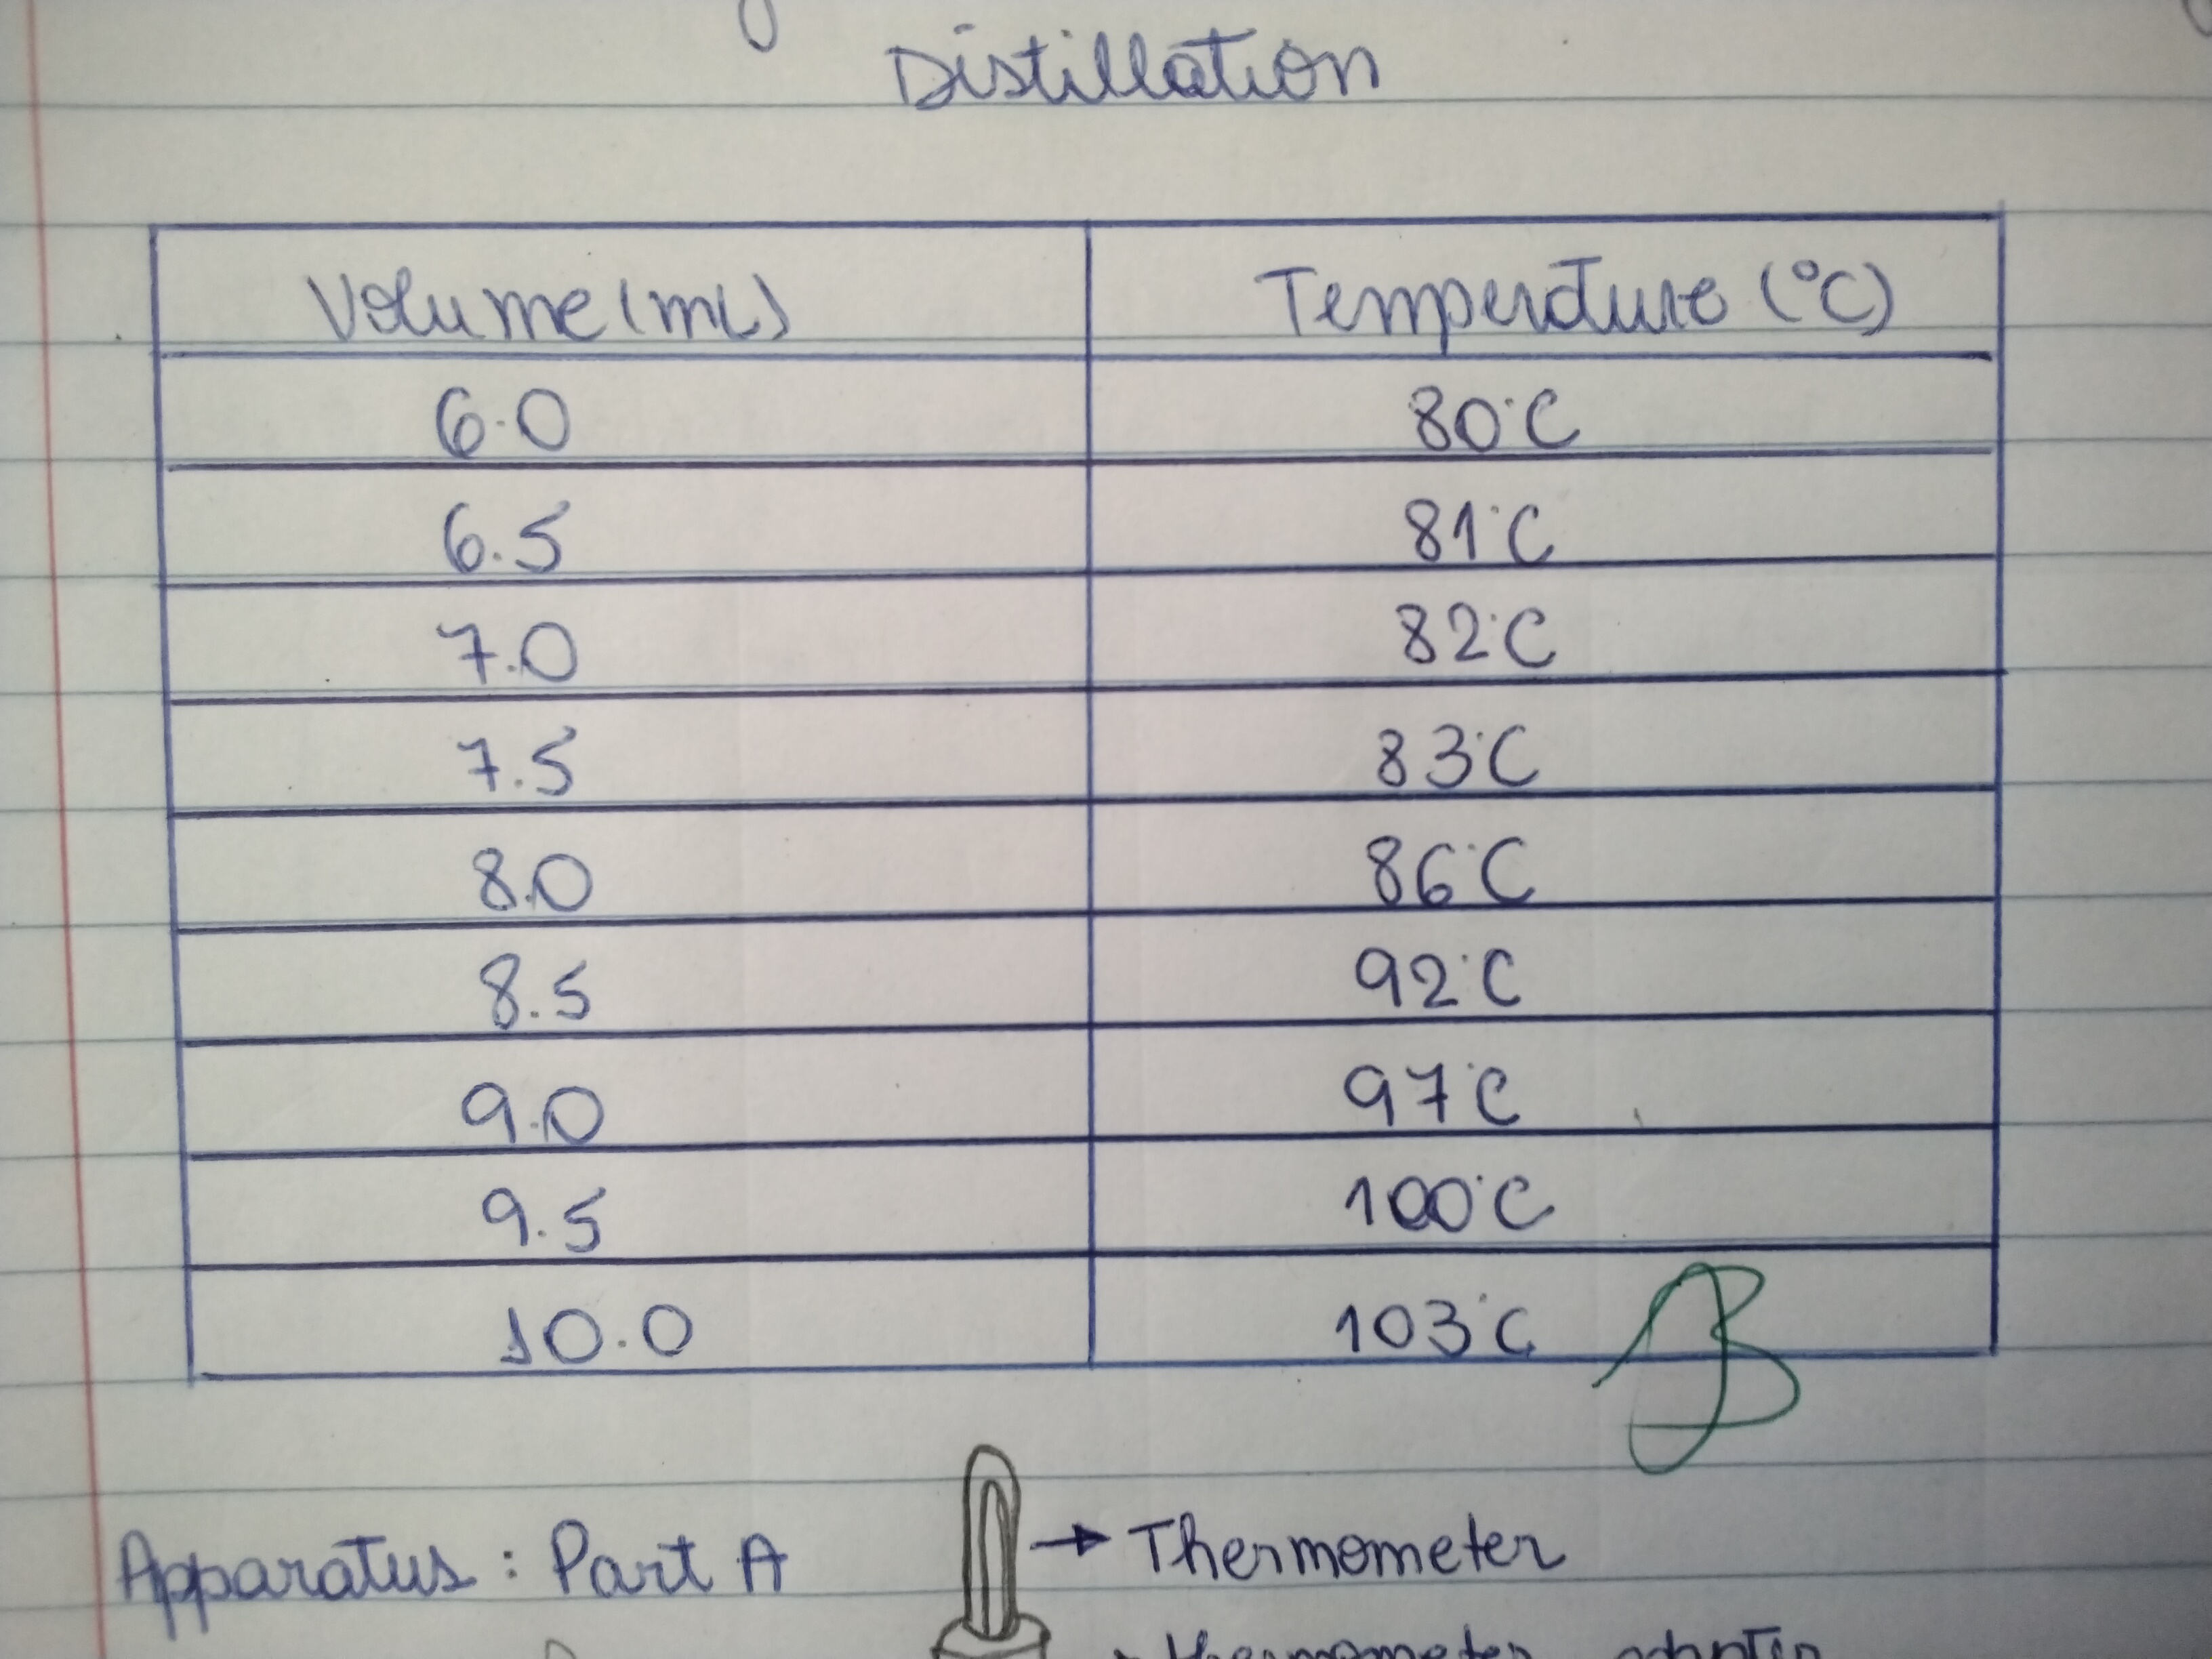 Distillation
Volume (mL) Temperature (°C)
6.0 80°C
6.5 81°C
7.0 82°C
7.5 83°C
8.0 86°C
8.5 92°C
9.0 97°C
9.5 100°C
10.0 103°C
Apparatus : Part A → Thermometer
thermometer adapter